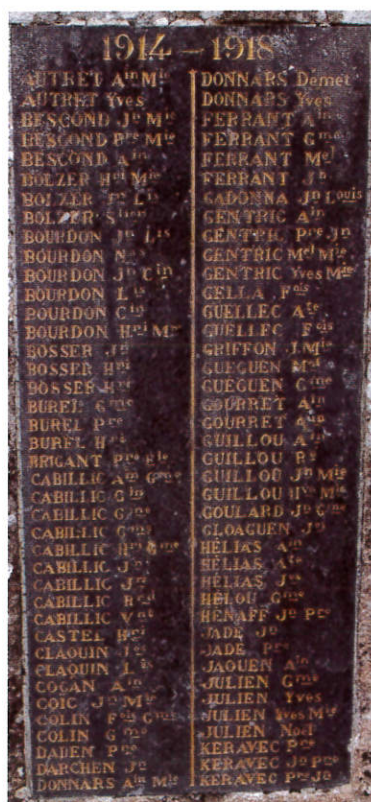 1914 - 1918
AUTRET Ain Mie
AUTRET Yves
BESCOND Jn Mie
BESCOND Pre Mie
BESCOND Ain
BOLZER Hri Mie
BOLZER
BOLZER
BOURDON Jn Lis
BOURDON
BOURDON Jn Cin
BOURDON Lis
BOURDON Cin
BOURDON Hri Mie
BOSSER Jn
BOSSER Hri
BOSSER Hri
BUREL Gme
BUREL Pre
BUREL Hri
BRIGANT Pre
CABILLIC Ain Gme
CABILLIC Cin
CABILLIC Gme
CABILLIC Gme
CABILLIC Hri Gme
CABILLIC
CABILLIC Jn
CABILLIC
CABILLIC
CASTEL Hri
CLAQUIN
CLAQUIN Lis
COGAN Ain
COIC Jn Mie
COLIN Fois Gme
COLIN Gme
DADEN Pre
DARCHEN Jn
DONNARS Ain Mie
DONNARS Démet
DONNARS Yves
FERRANT Ain
FERRANT Gme
FERRANT Mel
FERRANT Jn
GADONNA Jn Louis
GENTRIC Ain
GENTRIC Pre Jn
GENTRIC Mel Mie
GENTRIC Yves Mie
GELLA Fois
GUELLEC
GUELLEC Fois
GRIFFON J. Mie
GUEGUEN Mel
GUEGUEN Gme
GOURRET Ain
GOURRET Ain
GUILLOU Ain
GUILLOU
GUILLOU Jn Mie
GUILLOU
GOULARD Jn Gme
GLOAGUEN Jn
HÉLIAS Ain
HÉLIAS
HÉLIAS
HELOU Gme
HENAFF Jn Pre
JADE Jn
JADE Pre
JAOUEN Ain
JULIEN Gme
JULIEN Yves
JULIEN Yves Mie
JULIEN Noël
KERAVEC Pre
KERAVEC Jn Pre
KERAVEC Pre Jn